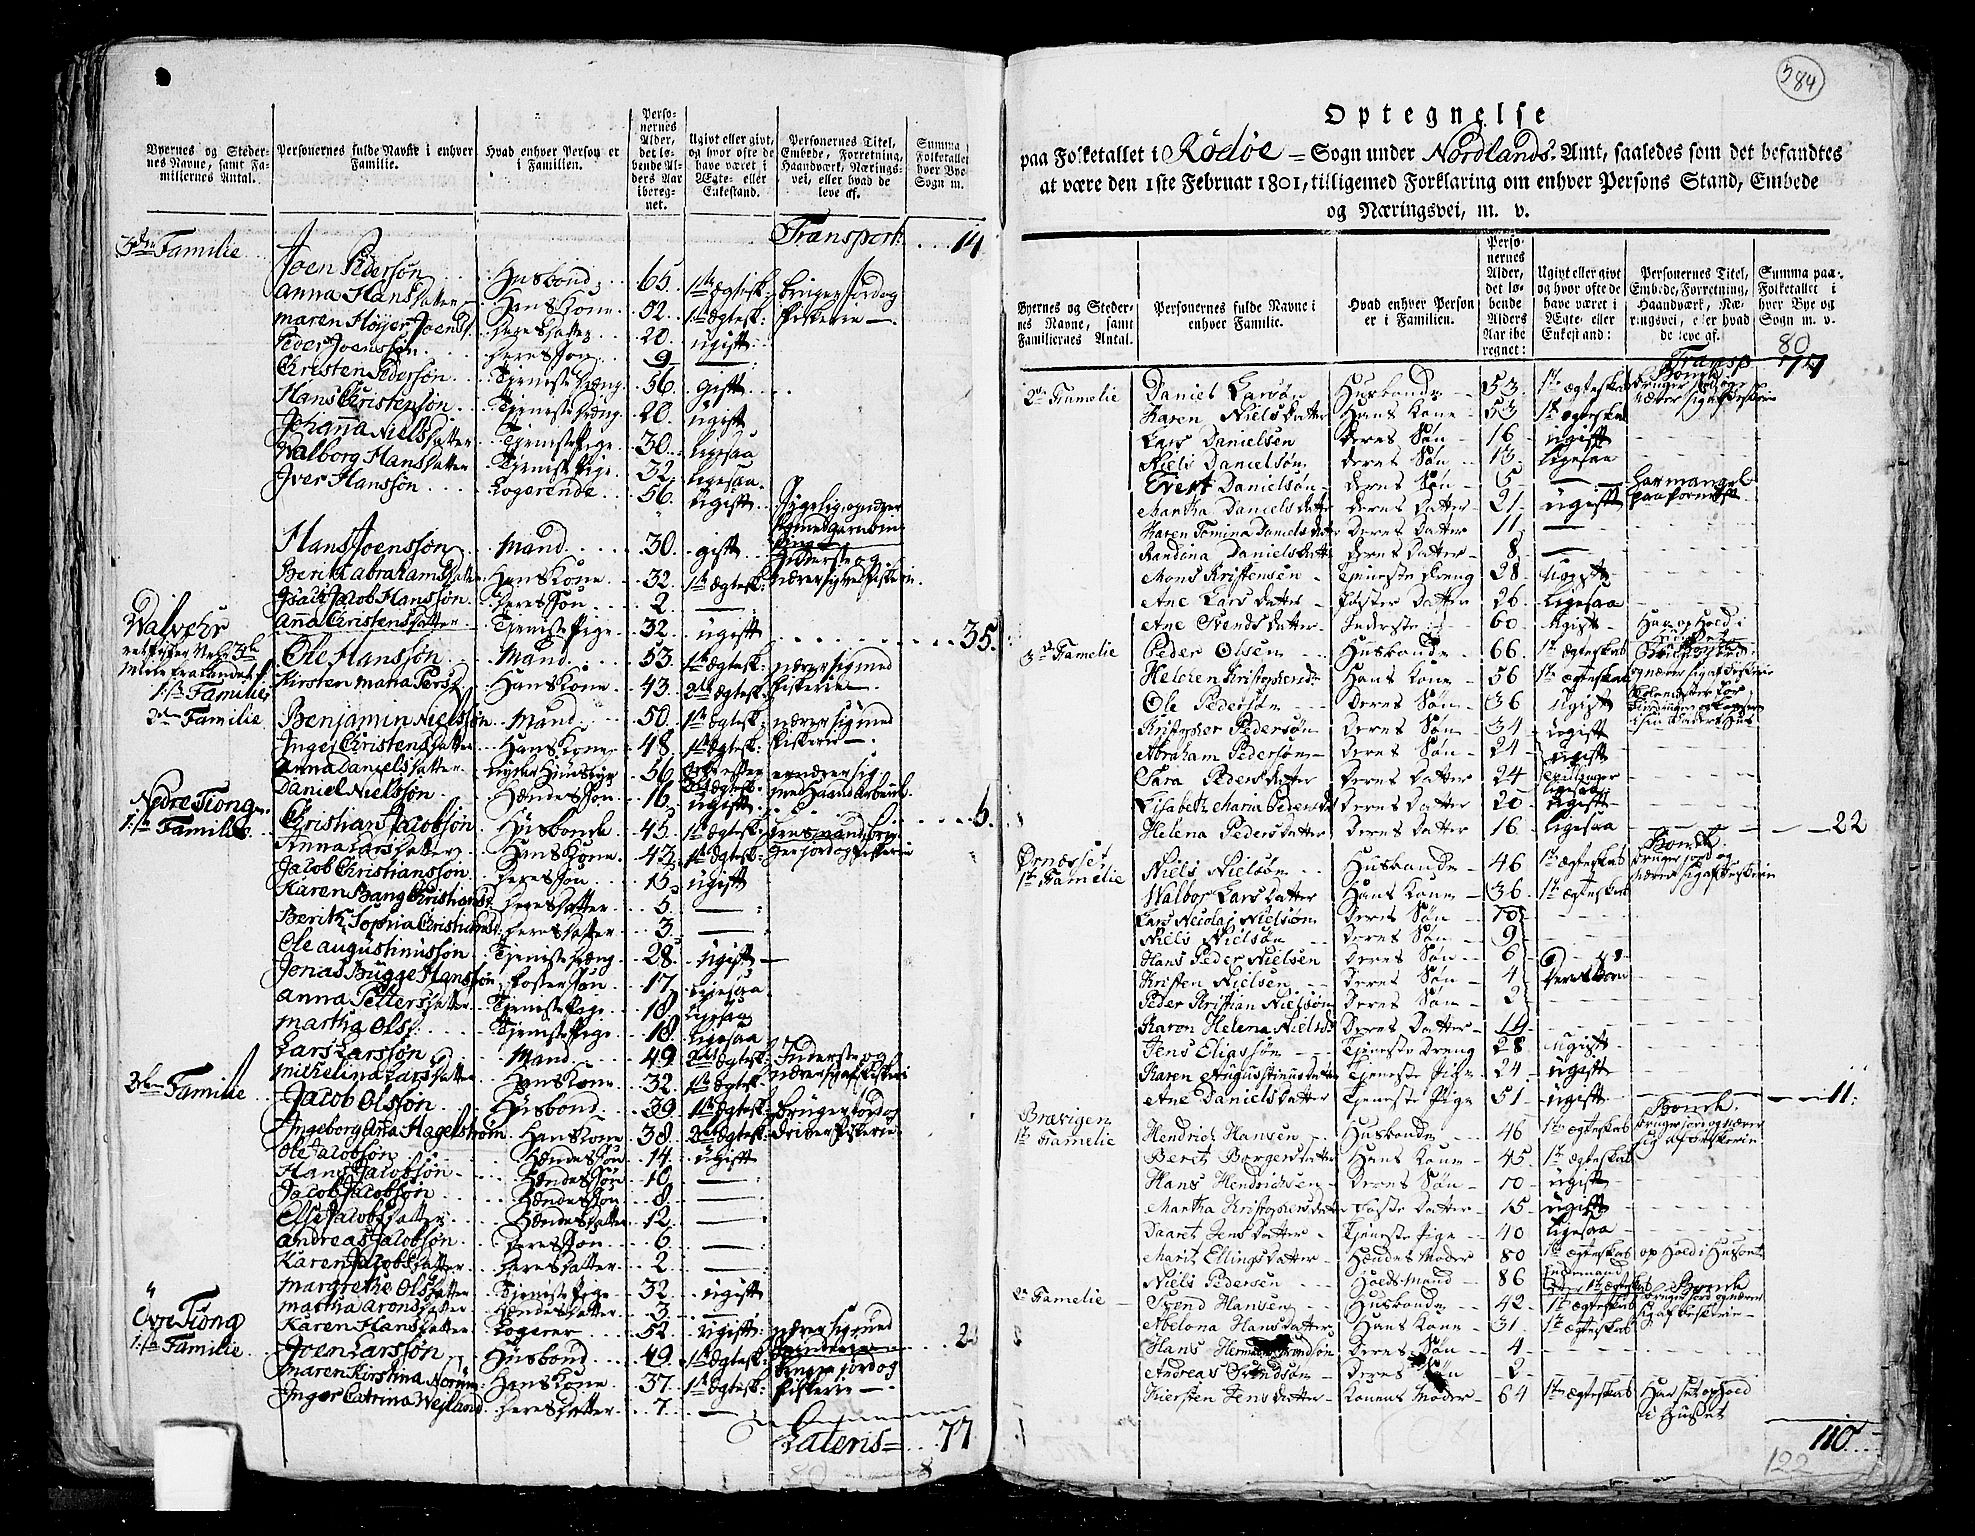 Byernes og Steder-
nes Navne, samt Fa-
miliernes Antal.
Personernes fulde Navne i enhver
Familie.
Hvad enhver Person er
i Familien.
Perso-
nernes
Alder,
det lø-
bende Al-
ders Aar
iberegnet.
Ugivt eller givt,
og hvor ofte de
have været i
Ægte- eller
Enkestand.
Personernes Titel,
Embede, Forretning,
Haandværk, Nærings-
vei, eller hvad de
leve af.
Summa
Folketallet
hver Bye
Sogn m.
Transport: 14
3die Familie
Joen Pedersøn Husbond 65 1ste Ægtesk: bruger Jord og
Anna Hansdatter Hans Kone 52 1ste Ægtesk: Fiskerie
Maren Høyer Joensd. Deres Datter 20 ugift
Peder Joenssøn Deres Søn 9
Christen Pedersøn Tjeniste Dræng 56 gift
Hans Christensøn Tjeniste Dræng 20 ugift
Johanna Nielsdatter Tjeniste Pige 30 Ligesaa
Walborg Hansdatter Tjeniste Pige 32 Ligesaa
Iver Hanssøn Logerende 56 Ugift
Hans Joenssøn Mand 30 gift Inderste og
Berit Abrahamsdatter Hans Kone 32 1ste Ægtesk: nærer sig ved Fiskeri
Isach Jacob Hanssøn Deres Søn 2
Ana Christensdatter Tjeniste Pige 32 ugift 35
Walvehr
1ste Familie
Ole Hanssøn Mand 53 1ste Ægtesk: nærer sig med
Kirsten Maria Persd. Hans Kone 43 2det Ægtesk: Fiskerie
2den Familie
Benjamin Nielssøn Mand 50 1ste Ægtesk: nærer sig med
Inger Christensdatter Hans Kone 48 1ste Ægtesk: Fiskerie
Anna Danielsdatter nyder Huusly 56 ernærer sig
Daniel Nielssøn Hendes Søn 16 ugift med Haand Arbeid 6
Nedre Tiong
1ste Familie
Christian Jacobsøn Husbonde 45 1ste Ægtesk:
Anna Larsdatter Hans Kone 42 1ste Ægtesk: ger Jord og Fiskerie
Jacob Christianssøn Deres Søn 15 ugift
Karen Bang Christiansd. Deres Datter 5
Berit Sophia Christiansd. Deres Datter 3
Ole Augustinussøn Tjeniste Dræng 28 Ugift
Jonas Bugge Hanssøn Foster Søn 17 Ligesaa
Anna Pettersdatter Tjeniste Pige 18 Ligesaa
Martha Olsd. Tjeniste Pige 18 Ligesaa
Lars Larssøn Mand 49 2det Ægtesk: Inderste og
Mikelina Larsdatter Hans Kone 32 1ste Ægtesk: nærer sig af Fiskeri
2den Familie
Jacob Olssøn Husbond 39 1ste Ægtesk: Bruger Jord og
Ingeborg Ana Hagelstrøm Hans Kone 38 2det Ægtesk: driver Fiskerie
Ole Jacobsøn Hendes Søn 14 ugift
Hans Jacobsøn Hendes Søn 10
Jacob Jacobsøn Hendes Søn 8
Else Jacobsdatter Hendes Datter 12
Andreas Jacobsøn Deres Søn 6
Karen Jacobsdatter Deres Datter 2
Margrethe Olsdatter Tjeniste Pige 32 ugift
Martha Aronsdatter Hendes Datter 3
Karen Hansdatter Logerer 52 Ugift nærer sig med
Øvre Tiong
1ste Familie
Joen Larssøn Husbond 49 1ste Ægtesk: bruger Jord og
Maren Kirstina Norum Hans Kone 37 1ste Ægtesk: Fiskerie
Inger Catrina Weyland Deres Datter 7
Lateris 77
384
Optegnelse
paa Folketallet i Rødøe Sogn under Nordlands Amt, saaledes som det befandtes
at være den 1ste Februar 1801, tilligemed Forklaring om enhver Persons Stand, Embede
og Næringsvei, m. v.
Byernes og Steder-
nes Navne, samt
Familiernes Antal.
Personernes fulde Navne i
enhver Familie.
Hvad enhver Person
er i Familien.
Perso-
nernes
Alder,
det lø-
bende
Alders
Aar ibe
regnet:
Ugivt eller givt
og hvor ofte de
have været i
Ægte- eller
Enkestand:
Personernes Titel,
Embede, Forretning,
Haandværk, Næ-
ringsvei, eller hvad
de leve af.
Summa paa-
Folketallet i
hver Bye og
Sogn m. v.
80
Transp 77
2den Famelie
Daniel Larsøn Husbonde 53 1ste Ægteskab Bonde bruger Jord og
Karen Nielsdatter Hans Kone 53 1ste Ægteskab nærer sig af Fiskerie
Lars Danielsen Deres Søn 16 ugift
Niels Danielsøn Deres Søn 13 Ligesaa
Evert Danielsøn Deres Søn 5
Martha Danielsdatter Deres Datter 21 ugift
Karen Tomina Danielsdatter Deres Datter 11
Randina Danielsdatter Deres Datter 8
Mons Kristensen Tjeneste Dreng 38 Ugift
Ane Larsdatter Foster Datter 26 Ligesaa
Ane Svendsdatter Inderste 60 Ugift Har op Hold i
3die Famelie
Peder Olsen Husbonde 66 1ste Ægteskab
Helena Kristophersd. Hans Kone 56 1ste Ægteskab og nærer sig af Fiskerie
Ole Pedersøn Deres Søn 36 Ugift
Kristopher Pedersøn Deres Søn 34 Ugift i sin Faders Hus
Abraham Pedersøn Deres Søn 24 Ugift
Sara Pedersdatter Deres Datter 24 Tvillinger ligesaa
Lisabeth Maria Pedersd. Deres Datter 20 Ugift
Helena Pedersdatter Deres Datter 16 Ligesaa 22
Ørnæsset
1ste Famelie
Niels Nielsøn Husbonde 46 1ste Ægteskab Bonde bruger Jord og
Walbor Larsdatter Hans Kone 36 1ste Ægteskab nærer sig af Fiskerie
Lars Nicolaj Nielsøn Deres Søn
Niels Nielsøn Deres Søn 9
Hans Peder Nielsen Deres Søn 6
Kristen Nielsen Deres Søn 4 Deres Børn
Peder Kristian Nielsøn Deres Søn 2
Karen Helena Nielsd. Deres Datter 11
Jens Eliassøn Tjeneste Dreng 28 ugift
Karen Augustinusdatter Tjeneste Pige 24 ugift
Ane Danielsdatter Tjeneste Pige 51 ugift 11
Braxigen
1ste Famelie
Hendrich Hansen Husbonde 46 1ste Ægteskab Bonde bruger Jord og nærer
Berit Borgersdatter Hans Kone 45 1ste Ægteskab sig af Fiskerie
Hans Hendrichsen Deres Søn 10 ugift
Martha Kristophersdatter Foster Datter 15 ugift
Daaret Jensdatter Tjeneste Pige 40 Ligesaa
Marit Ellingsdatter Hendes Moder 80 1ste Ægteskab op Hold i Huset
Niels Pedersen Holds Mand 86
2den Famelie
Svend Hansen Husbonde 42 1ste Ægteskab Bonde bruger Jord og nærer
Abelona Hansdatter Hans Kone 31 1ste Ægteskab sig af Fiskerie
Hans Svendsøn Deres Søn 4
Andreas Svendsøn Deres Søn 2
Kiersten Jensdatter Konens Moder 64 1ste Ægteskab Har sit ophold
i Huset
110
122